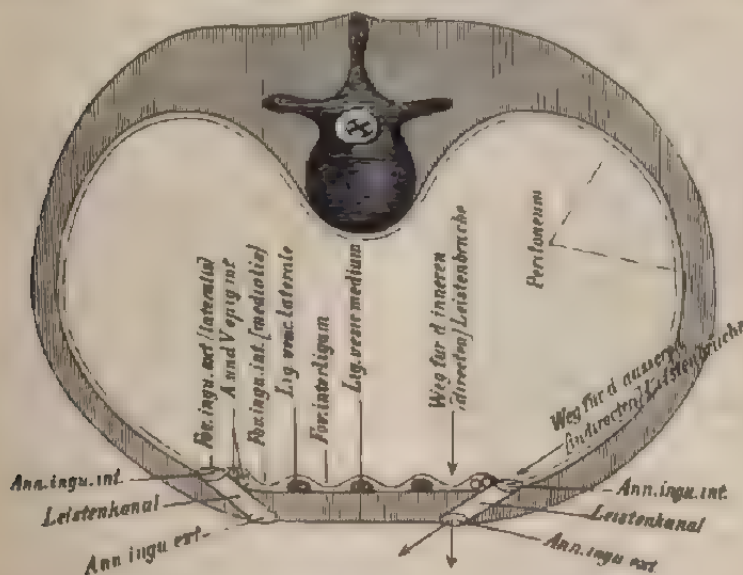 Fov. ingu. ext [lateralis]
A und V epig int
Fov. ingu. int. [medialis]
Lig. vesic. laterale
Fov. interligam
Lig. vesic medium
Weg für d inneren
[directen] Leistenbrüche
Peritoneum
Weg für d ausseren
[indirecten] Leistenbrüche
Ann. ingu. int.
Leistenkanal
Ann ingu ext.
Ann. ingu. int.
Leistenkanal
Ann. ingu ext